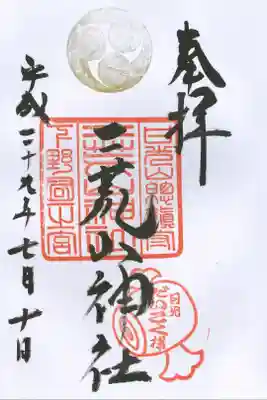 奉拝
二荒山神社
平成二十九年七月十日
日光山總鎮守
二荒山神社
下野國一之宮
日光
だいこく様